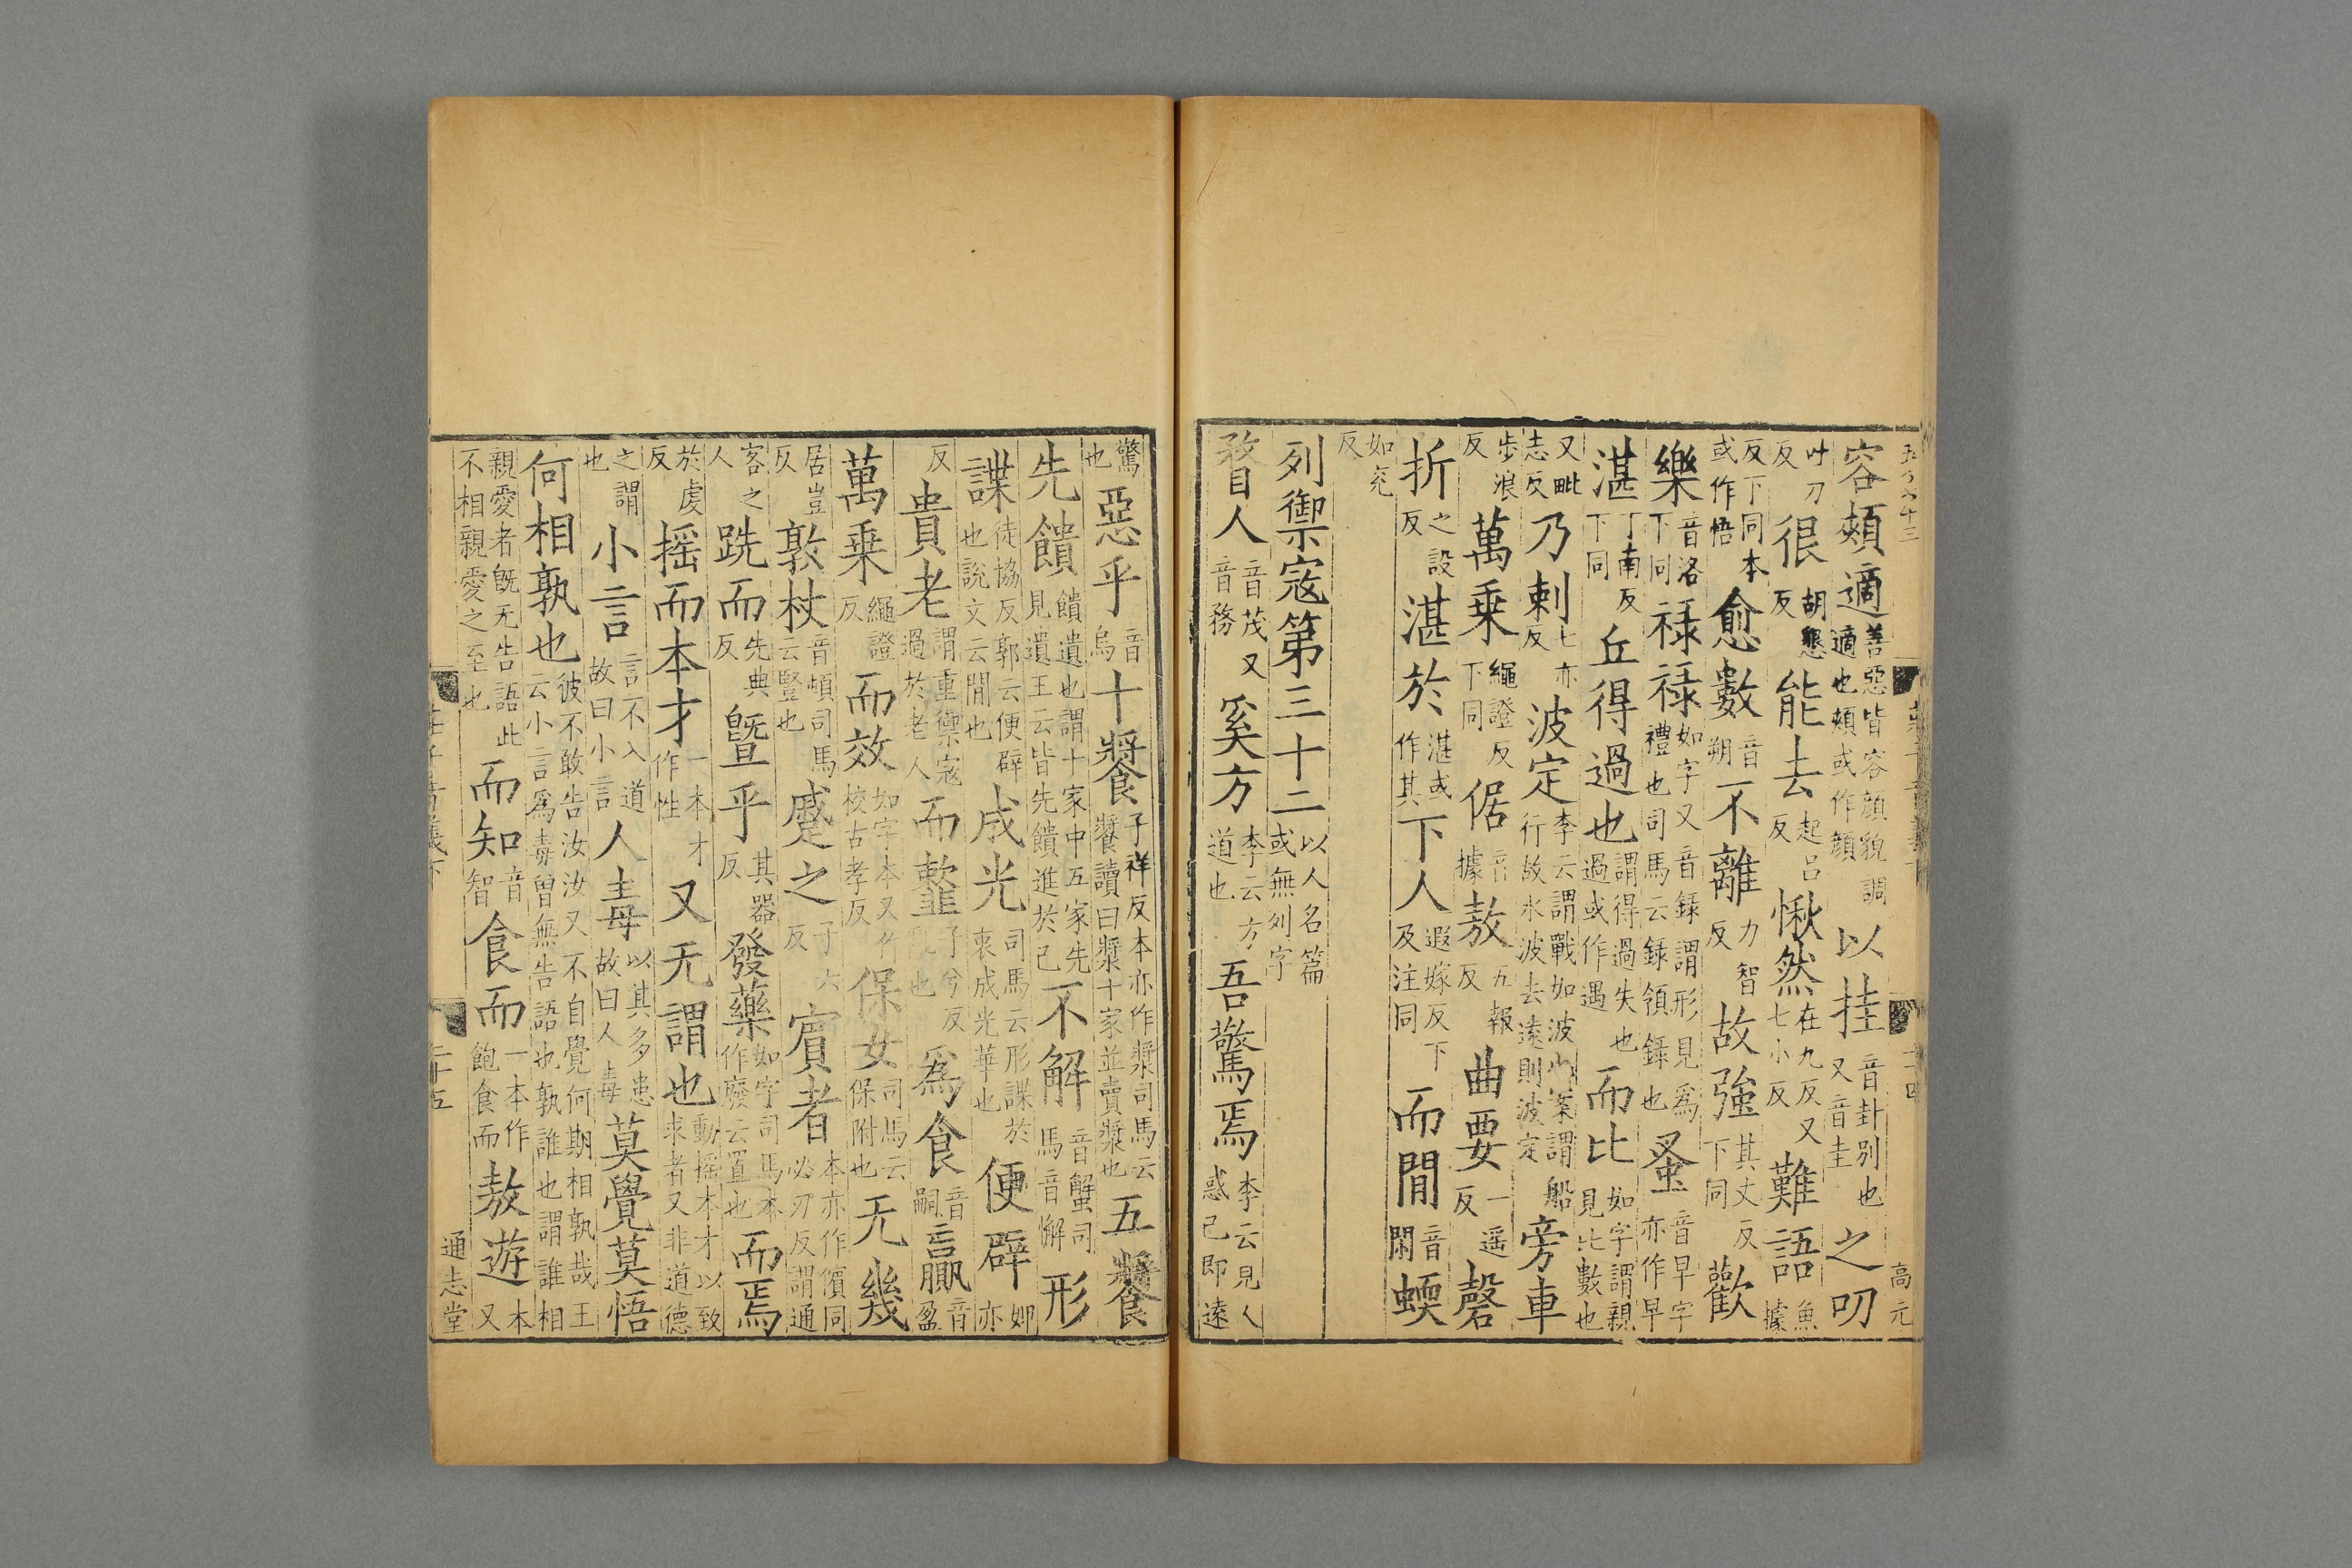 容頰適善惡皆容顏貌調適也頰或作顏以挂音卦別也又音圭之叨
吐刀反很胡懇反能去起呂反愀然在九反又七小反難語魚據
反下同本或作悟愈數音朔不離力智反故強其丈反下同歡
樂音洛下同祿祿如字又音錄謂形見為禮也司馬云錄領錄也蚤音早字亦作早
湛丁南反下同丘得過也謂得過失也過或作遇而比如字謂親見比數也
又毗志反乃刺七亦反波定李云謂戰如波也案謂船行故水波去遠則波定旁車
步浪反萬乘繩證反下同倨音據敖五報反曲要一遥反磬
折之設反湛於湛或作其下人遐嫁反下及注同而閒音閑蝡
如兗反
列禦寇第三十二以人名篇或無列字
瞀人音茂又音務奚方李云方道也吾驚焉李云見人惑己即遠
驚也惡乎音烏十𩞁子祥反本亦作漿司馬云𩞁讀曰漿十家並賣漿也五𩞁
先饋饋遺也謂十家中五家先見遺王云皆先饋進於己不解音蟹司馬音懈形
諜徒協反郭云便辟也說文云閒也成光司馬云形諜於衷成光華也便辟婢亦
反貴老謂重禦寇過於老人而䪠子兮反亂也為食音嗣言贏音盈
萬乘繩證反而效如字本又作校古孝反保女司馬云保附也无幾
居豈反敦杖音頓司馬云豎也蹙之子六反賓者本亦作儐同必刃反謂通
客之人跣而先典反暨乎其器反發藥如字司馬本作廢云置也而焉
於虔反搖而本才一本才作性又无謂也動搖本才以致求者又非道德
之謂也小言言不入道故曰小言人毒以其多患故曰人毒莫覺莫悟
何相孰也彼不敢告汝汝又不自覺何期相孰哉王云小言為毒曾無告語也孰誰也謂誰相
親愛者既无告語此不相親愛之至也而知音智食而一本作飽食而敖遊本又
通志堂